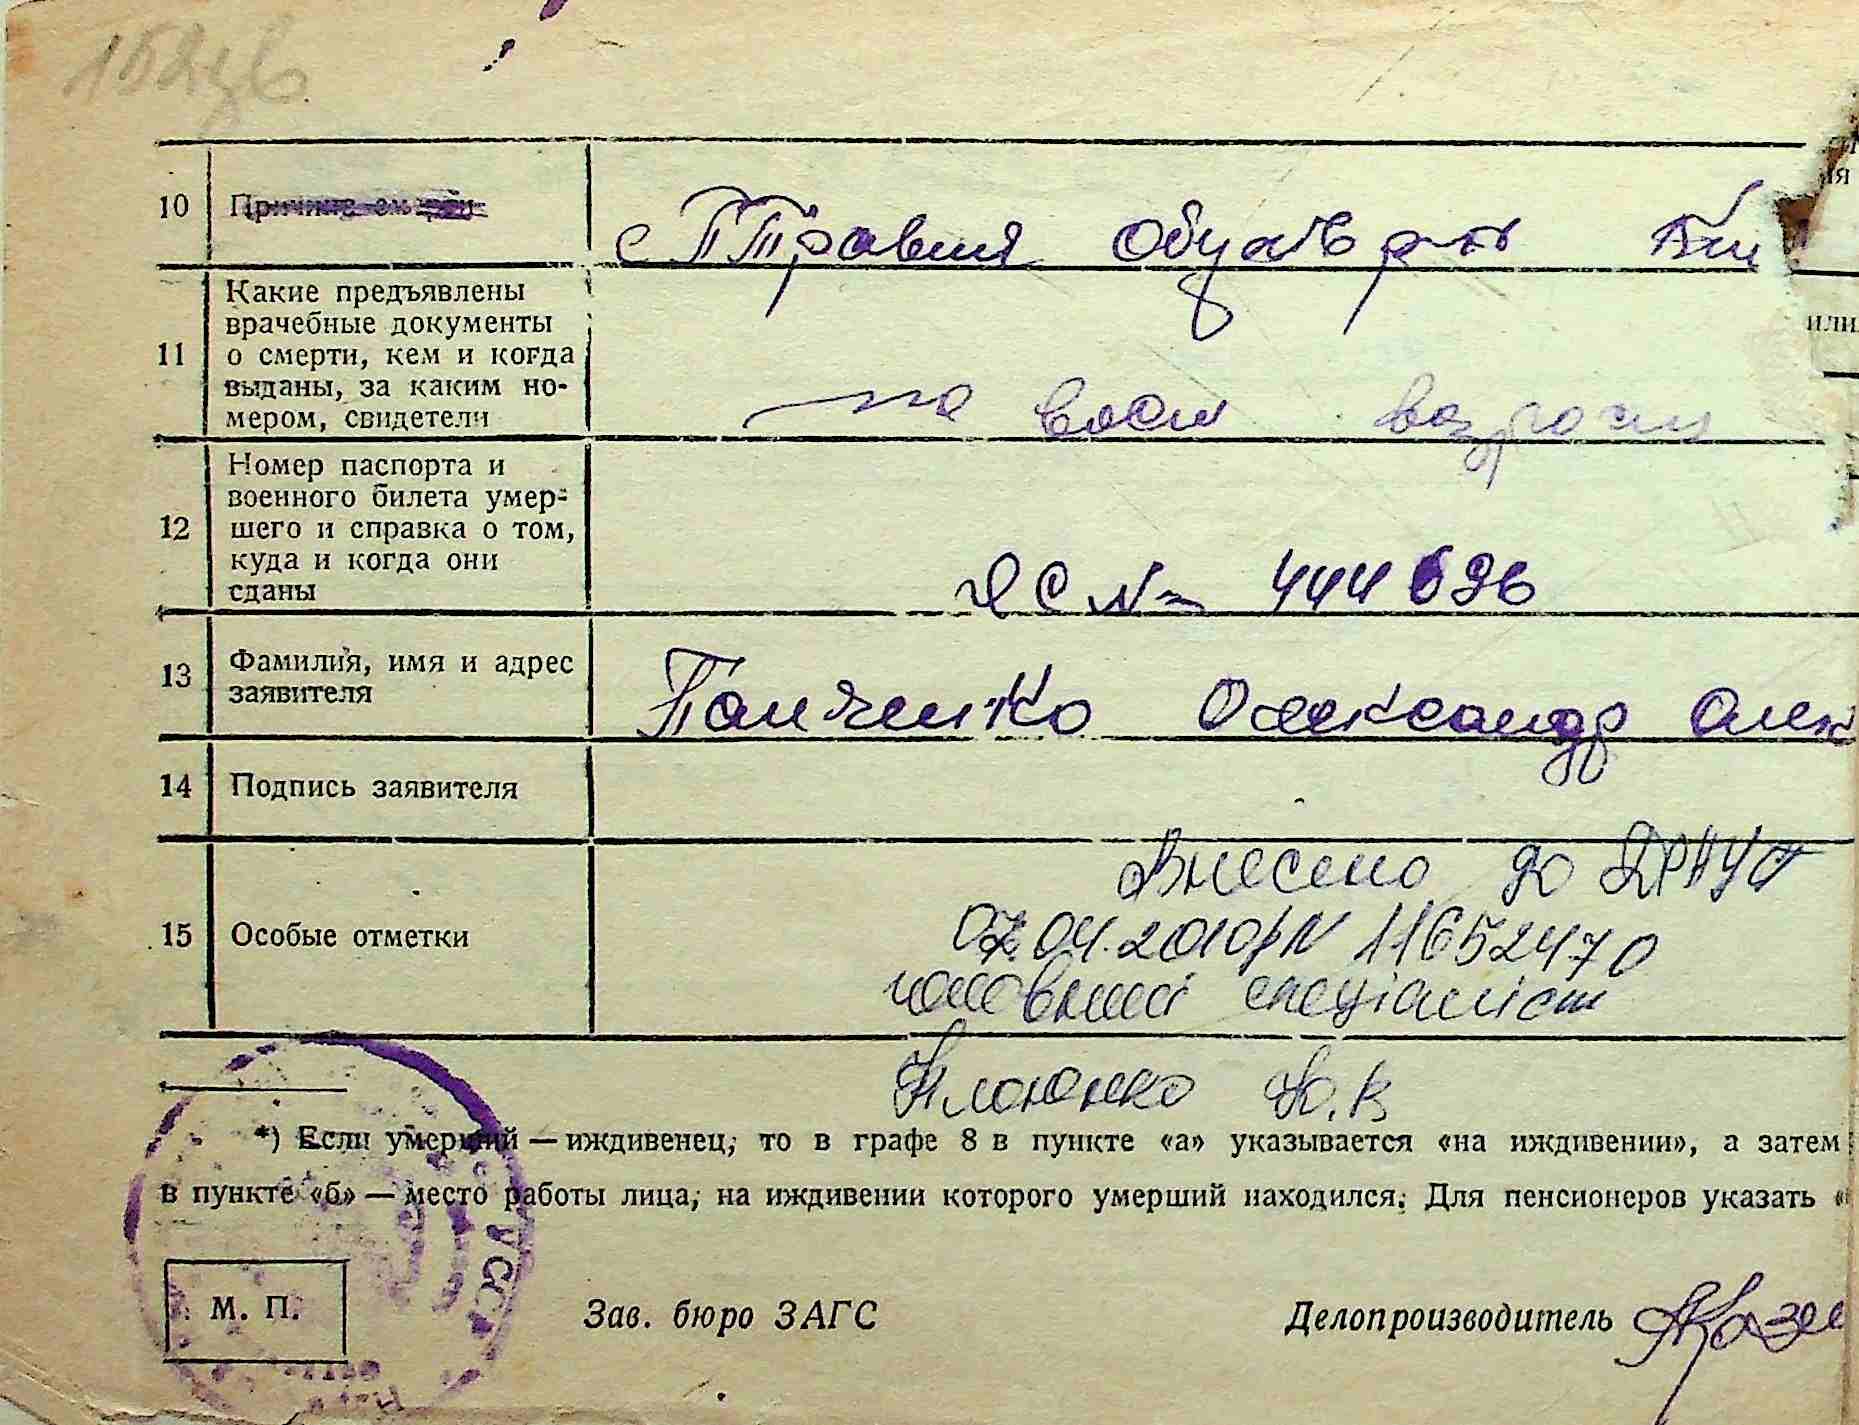 10 Причина смерти
Справка
11 Какие предъявлены
врачебные документы
о смерти, кем и когда
выданы, за каким но-
мером, свидетели
12 Номер паспорта и
военного билета умер-
шего и справка о том,
куда и когда они
сданы
ЯС № 444696
13 Фамилия, имя и адрес
заявителя
Панченко Олександр Олек
14 Подпись заявителя
15 Особые отметки
Внесено до ДРАЦС
07.04.2010р N 11652470
головний спеціаліст
Ю.В
*) Если умерший — иждивенец, то в графе 8 в пункте «а» указывается «на иждивении», а затем
в пункте «б» — место работы лица, на иждивении которого умерший находился. Для пенсионеров указать «
УССР
М. П.
Зав. бюро ЗАГС
Делопроизводитель